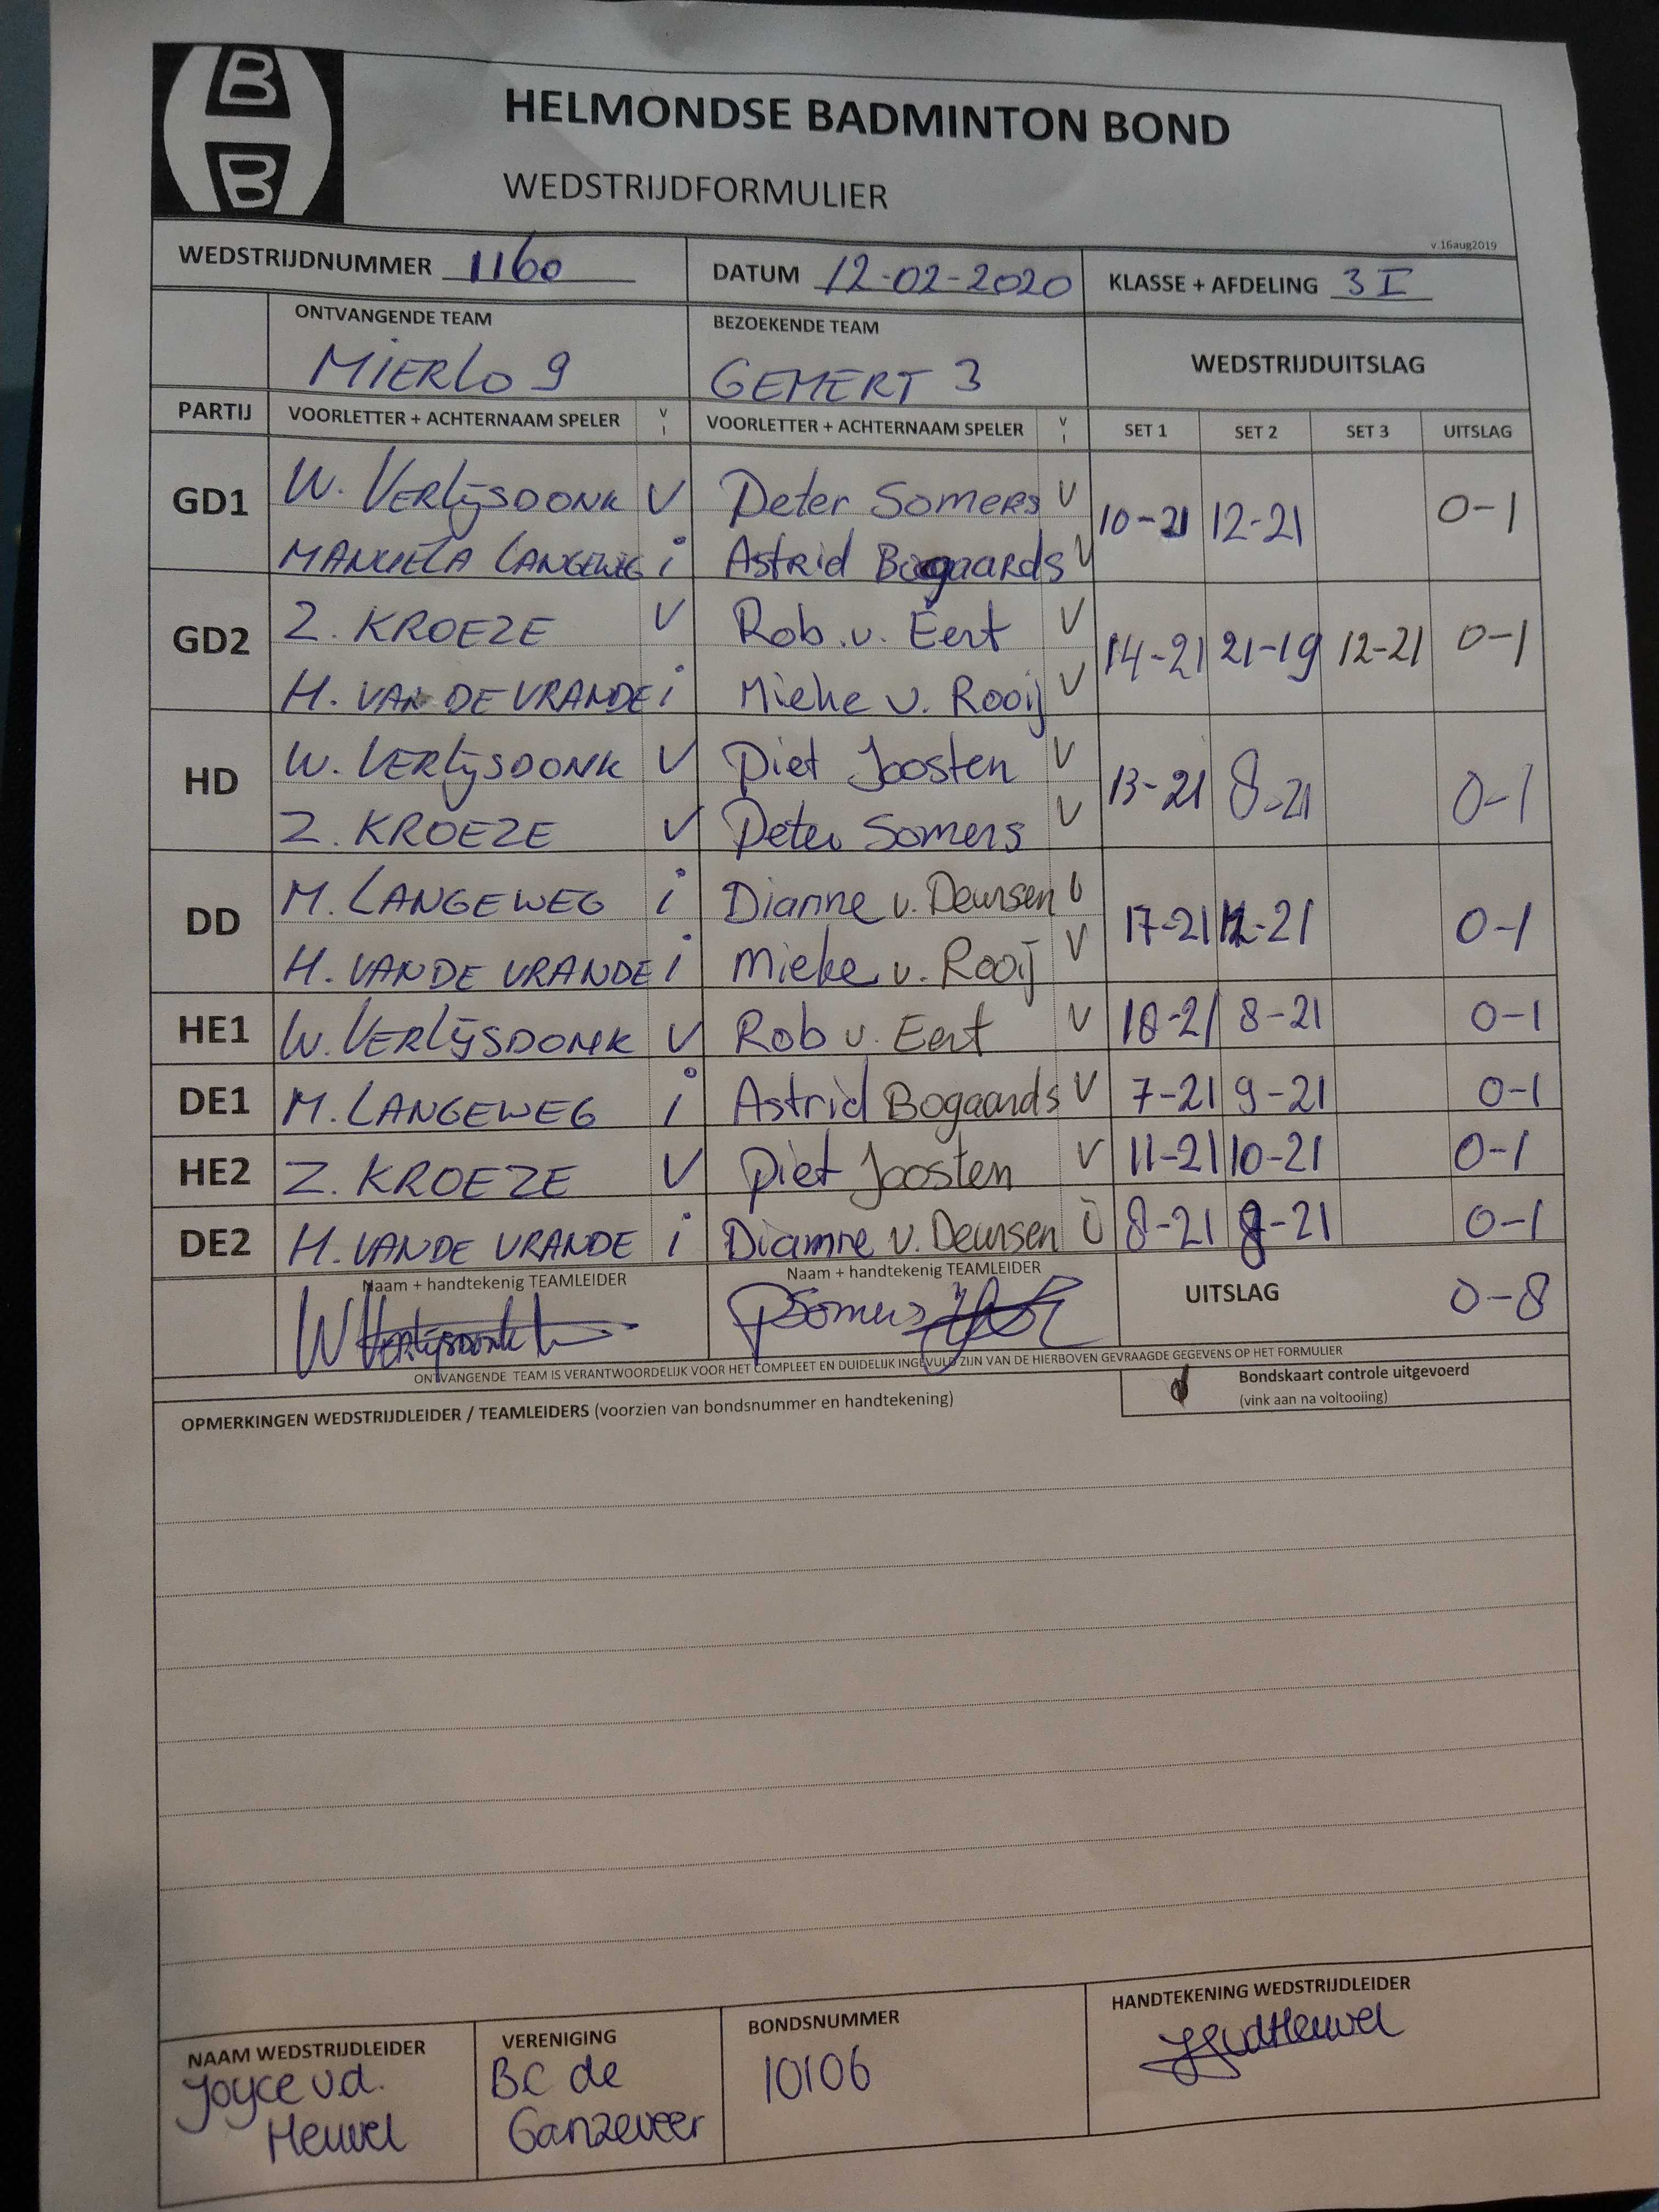 B
B
HELMONDSE BADMINTON BOND
WEDSTRIJDFORMULIER
v.16aug2019
WEDSTRIJDNUMMER 1160 DATUM 12-02-2020 KLASSE + AFDELING 3 I
ONTVANGENDE TEAM BEZOEKENDE TEAM
MIERLO 9 GEMERT 3 WEDSTRIJDUITSLAG
PARTIJ VOORLETTER + ACHTERNAAM SPELER V I VOORLETTER + ACHTERNAAM SPELER V I SET 1 SET 2 SET 3 UITSLAG
GD1 W. VERLIJSDONK V Peter Somers V 10-21 12-21 0-1
MANUELA LANGEWEG i Astrid Bogaards V
GD2 Z. KROEZE V Rob v. Eert V 14-21 21-19 12-21 0-1
H. VAN DE VRANDE i Mieke v. Rooij V
HD W. VERLIJSDONK V Piet Joosten V 13-21 8-21 0-1
Z. KROEZE V Peter Somers V
DD M. LANGEWEG i Dianne v. Deursen V 17-21 12-21 0-1
H. VAN DE VRANDE i Mieke v. Rooij V
HE1 W. VERLIJSDONK V Rob v. Eert V 18-21 8-21 0-1
DE1 M. LANGEWEG i Astrid Bogaards V 7-21 9-21 0-1
HE2 Z. KROEZE V Piet Joosten V 11-21 10-21 0-1
DE2 H. VAN DE VRANDE i Dianne v. Deursen V 8-21 -21 0-1
Naam + handtekenig TEAMLEIDER Naam + handtekening TEAMLEIDER UITSLAG 0-8
W Verlijsdonk PSomers
ONTVANGENDE TEAM IS VERANTWOORDELIJK VOOR HET COMPLEET EN DUIDELIJK INGEVULD ZIJN VAN DE HIERBOVEN GEVRAAGDE GEGEVENS OP HET FORMULIER
Bondskaart controle uitgevoerd
(vink aan na voltooiing)
OPMERKINGEN WEDSTRIJDLEIDER / TEAMLEIDERS (voorzien van bondsnummer en handtekening)
NAAM WEDSTRIJDLEIDER VERENIGING BONDSNUMMER HANDTEKENING WEDSTRIJDLEIDER
Joyce v.d. BC de 10106 JvdHeuvel
Heuvel Ganzeveer